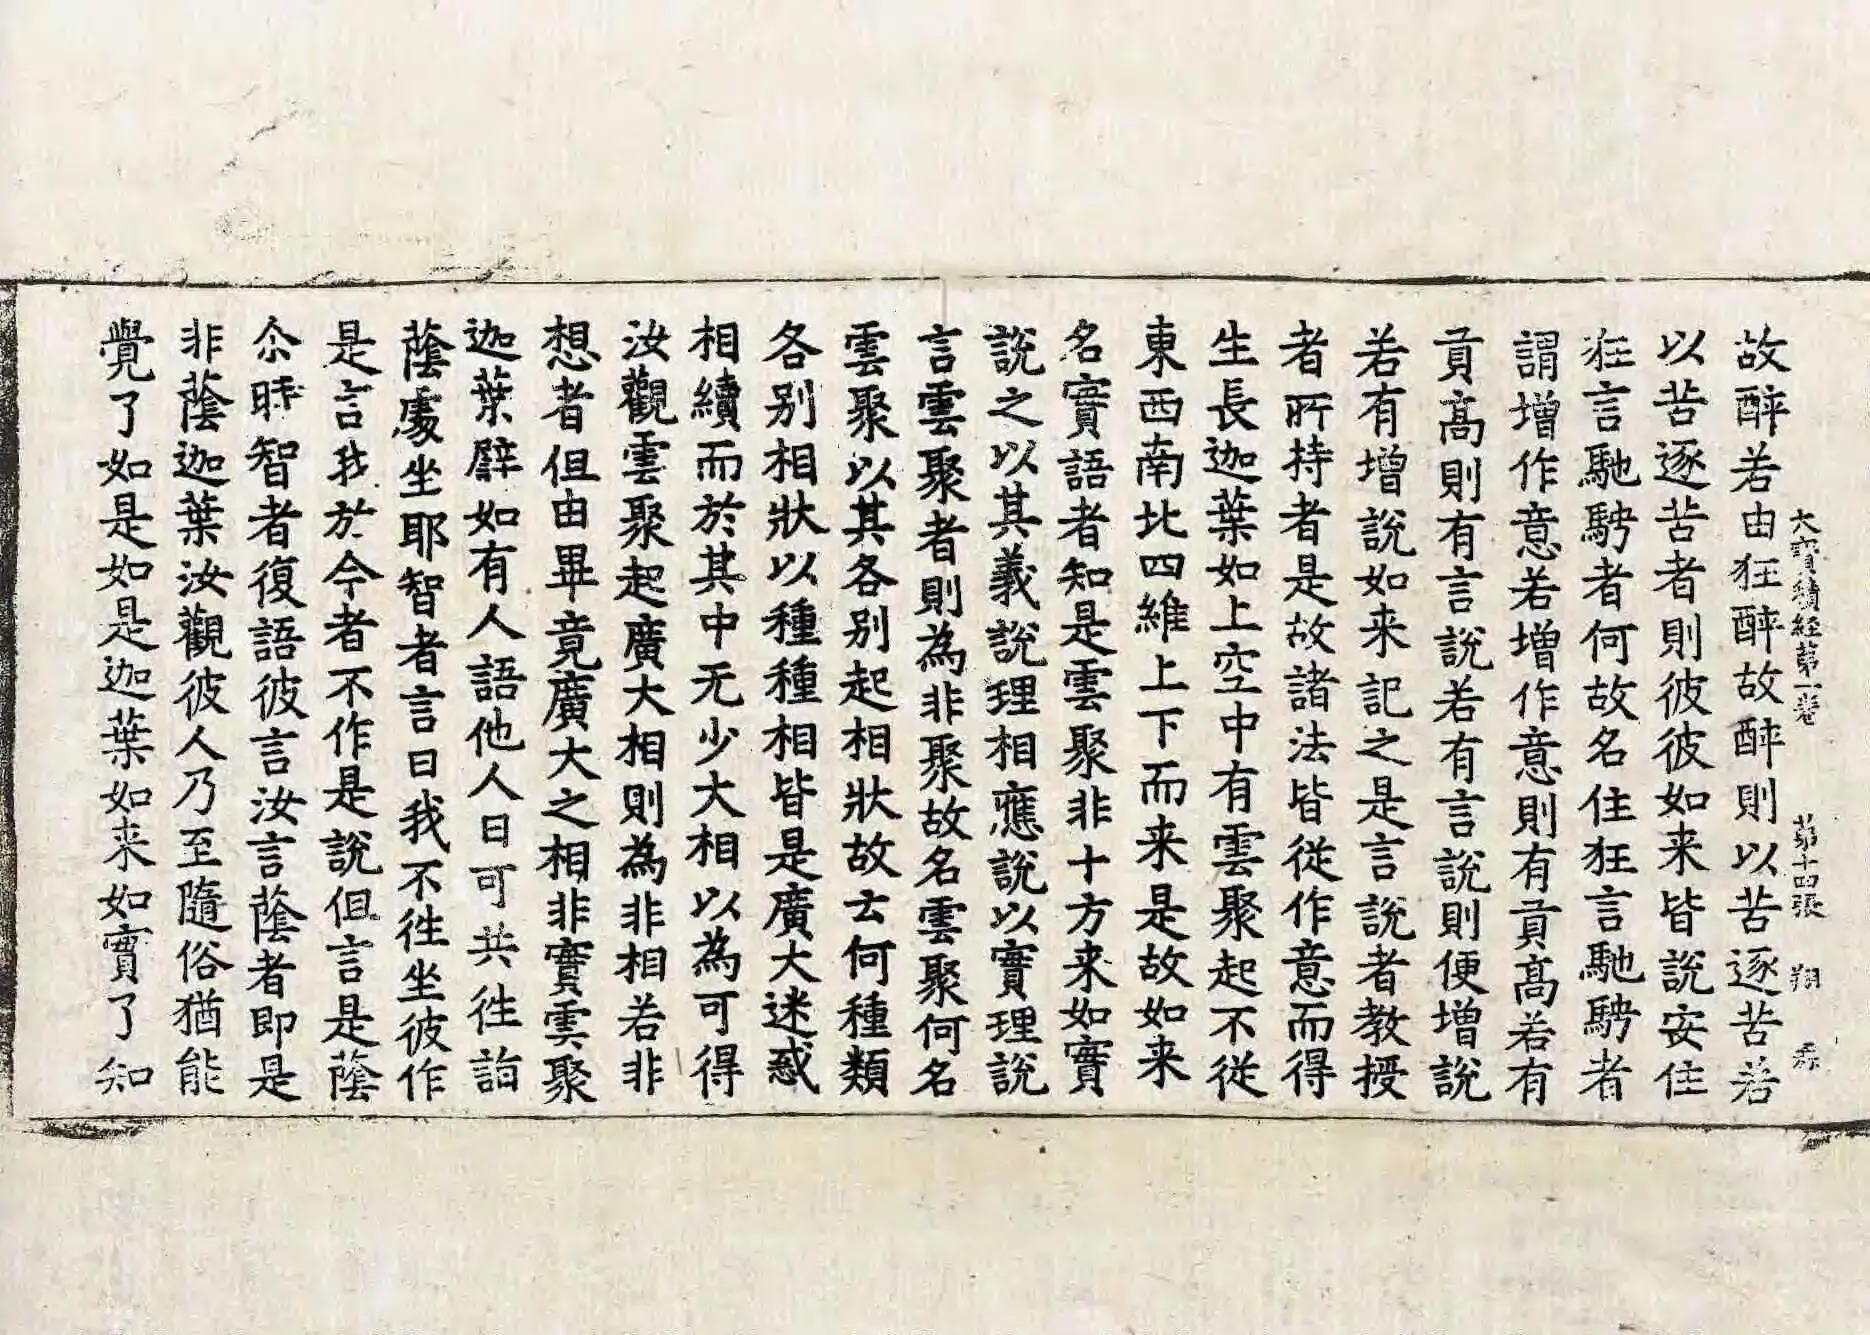 大寶積経苐一卷 苐十四張 翔
故醉若由狂醉故醉則以苦逐苦若
以苦逐苦者則彼彼如来皆說安住
狂言馳騁者何故名住狂言馳騁者
謂增作意若增作意則有貢高若有
貢高則有言說若有言說則便增說
若有增說如来記之是言說者教授
者所持者是故諸法皆從作意而得
生長迦葉如上空中有雲聚起不從
東西南北四維上下而来是故如来
名實語者知是雲聚非十方来如實
說之以其義說理相應說以實理說
言雲聚者則為非聚故名雲聚何名
雲聚以其各別起相狀故云何種類
各別相狀以種種相皆是廣大迷惑
相續而於其中无少大相以為可得
汝觀雲聚起廣大相則為非相若非
想者但由畢竟廣大之相非實雲聚
迦葉譬如有人語他人曰可共往詣
蔭處坐耶智者言曰我不往坐彼作
是言我於今者不作是說但言是蔭
尒時智者復語彼言汝言蔭者即是
非蔭迦葉汝觀彼人乃至隨俗猶能
覺了如是如是迦葉如来如實了知